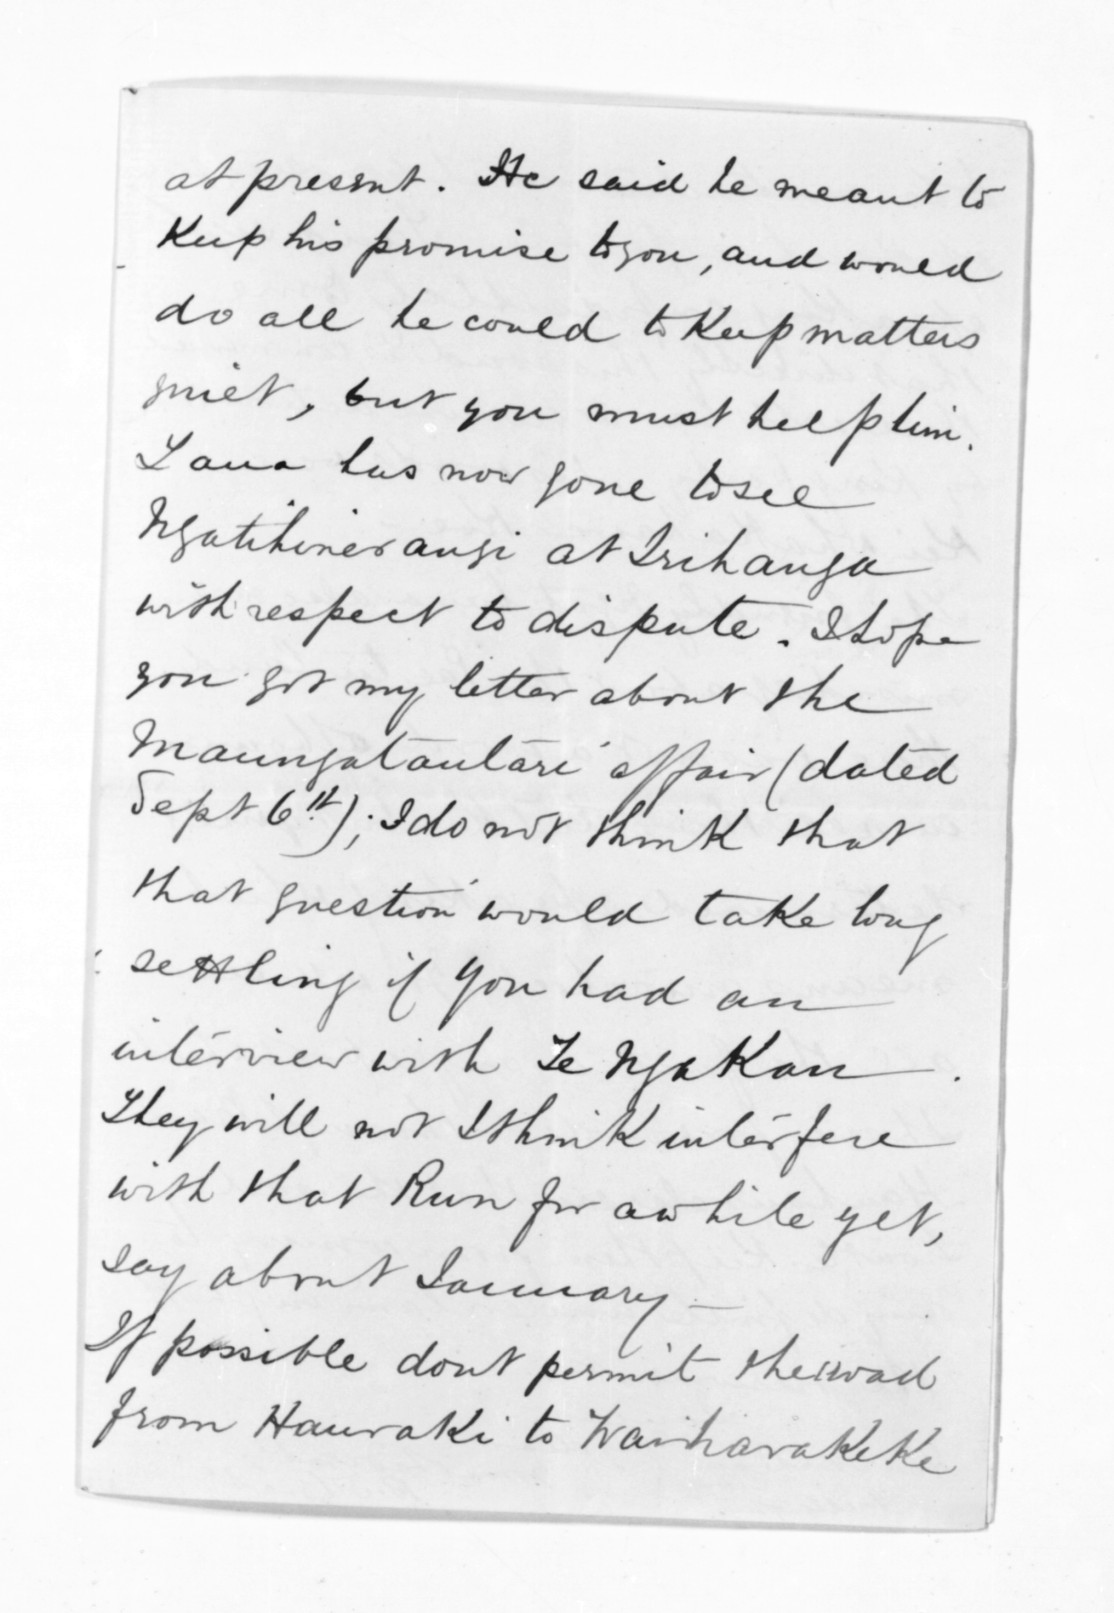 at present. He said he meant to
Keep his promise to you, and would
do all he could to Keep matters
quiet, but you must help him.
has now gone to see
Ngatihinerangi at Irihanga
with respect to dispute. I hope
you got my letter about the
Maungatautari affair (dated
Sept 6th); I do not think that
that question would take long
settling if you had an
interview with Te NgaKau.
They will not I think interfere
with that Run for awhile yet,
say about January —
If possible dont permit the road
from HauraKi to WaiharaKeKe